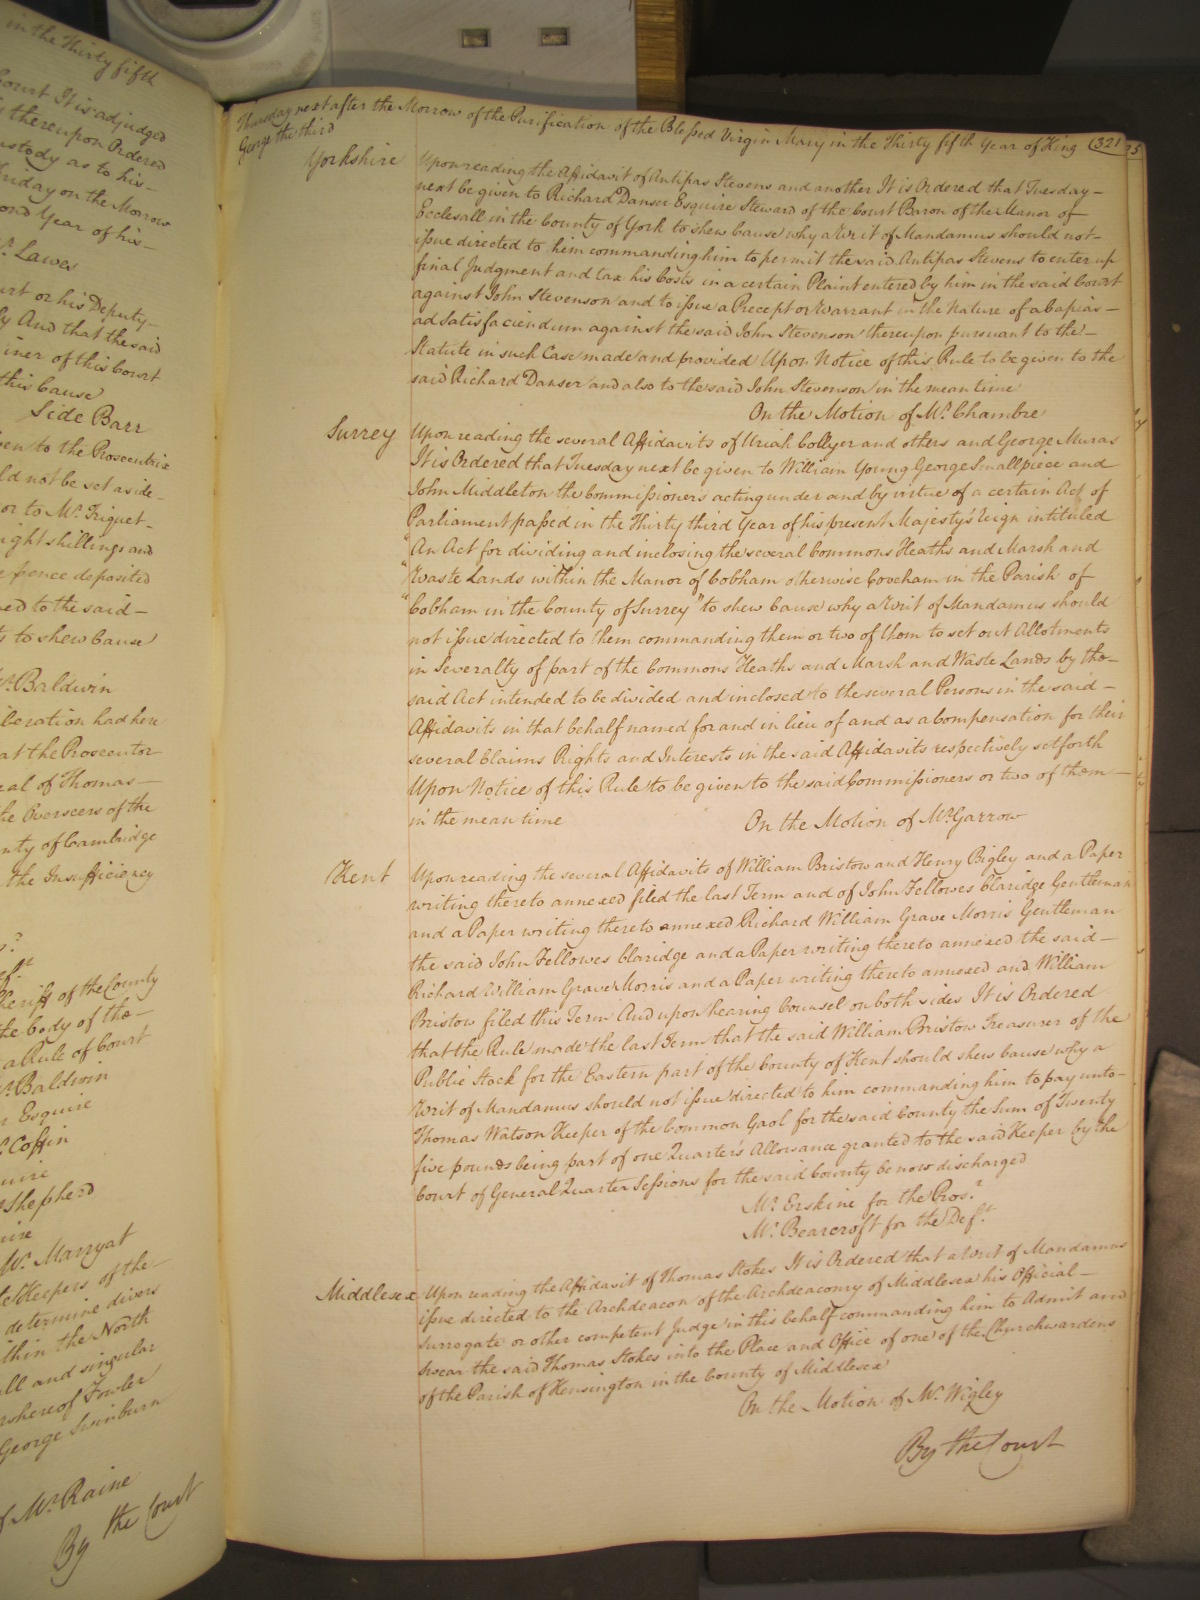 in the Thirty fifth
Court It is adjudged
thereupon Ordered
custody as to his
Friday on the Morrow
Year of his
Mr. Lawes
or his Deputy
And that the said
of this Court
this Cause
Side Barr
to the Prosecutrix
not be set aside
or to Mr. Triquet
eight shillings and
pence deposited
to the said
to shew Cause
Mr. Baldwin
had here
at the Prosecutor
of Thomas
the Overseers of the
of Cambridge
the Insufficiency
Sheriff of the County
the body of the
a Rule of Court
Mr. Baldwin
Esquire
Mr. Coffin
Shepherd
Mr. Marryat
Keepers of the
determine divers
within the North
all and singular
whereof Fowler
George Swinburn
of Mr. Raine
By the Court
Thursday next after the Morrow of the Purification of the Blessed Virgin Mary in the Thirty fifth Year of King (321
George the third
Yorkshire Upon reading the Affidavit of Antipas Stevens and another It is Ordered that Tuesday
next be given to Richard Danser Esquire Steward of the Court Baron of the Manor of
Ecclesall in the County of York to shew Cause why a Writ of Mandamus should not
issue directed to him commanding him to permit the said Antipas Stevens to enter up
final Judgment and tax his Costs in a certain Plaint entered by him in the said Court
against John Stevenson and to issue a Precept or Warrant in the Nature of a Capias
ad Satisfaciendum against the said John Stevenson thereupon pursuant to the
Statute in such Case made and provided Upon Notice of this Rule to be given to the
said Richard Danser and also to the said John Stevenson in the mean time
On the Motion of Mr. Chambre
Surrey Upon reading the several Affidavits of Uriah Collyer and others and George Muras
It is Ordered that Tuesday next be given to William Young George Smallpiece and
John Middleton the Commissioners acting under and by virtue of a certain Act of
Parliament passed in the Thirty third Year of his present Majesty's Reign intituled
"An Act for dividing and inclosing the several Commons Heaths and Marsh and
"Waste Lands within the Manor of Cobham otherwise Coveham in the Parish of
"Cobham in the County of Surrey" to shew Cause why a Writ of Mandamus should
not issue directed to them commanding them or two of them to set out Allotments
in Severalty of part of the Commons Heaths and Marsh and Waste Lands by the
said Act intended to be divided and inclosed to the several Persons in the said
Affidavits in that behalf named for and in lieu of and as a Compensation for their
several Claims Rights and Interests in the said Affidavits respectively set forth
Upon Notice of this Rule to be given to the said Commissioners or two of them
in the mean time On the Motion of Mr. Garrow
Kent Upon reading the several Affidavits of William Bristow and Henry Bigley and a Paper
writing thereto annexed filed the last Term and of John Fellowes Claridge Gentleman
and a Paper writing thereto annexed Richard William Grave Morris Gentleman
the said John Fellowes Claridge and a Paper writing thereto annexed the said
Richard William Grave Morris and a Paper writing thereto annexed and William
Bristow filed this Term And upon hearing Counsel on both sides It is Ordered
that the Rule made the last Term that the said William Bristow Treasurer of the
Public Stock for the Eastern part of the County of Kent should shew Cause why a
Writ of Mandamus should not issue directed to him commanding him to pay unto
Thomas Watson Keeper of the Common Gaol for the said County the Sum of Twenty
five pounds being part of one Quarter's Allowance granted to the said Keeper by the
Court of General Quarter Sessions for the said County be now discharged
Mr. Erskine for the Pros.r
Mr. Bearcroft for the Def.t
Middlesex Upon reading the Affidavit of Thomas Stokes It is Ordered that a Writ of Mandamus
issue directed to the Archdeacon of the Archdeaconry of Middlesex his Official
Surrogate or other competent Judge in this behalf commanding him to Admit and
swear the said Thomas Stokes into the Place and Office of one of the Churchwardens
of the Parish of Kensington in the County of Middlesex
On the Motion of Mr. Wigley
By the Court